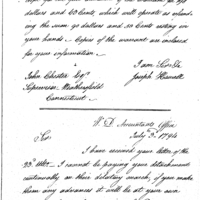 dols and 60 Cents which will operate as reduc-
ing the sum 90 dollars and 10 Cents resting in
your hands. Copies of the warrant are inclosed
for your information.
I am Sir &c
John Chester Esqr Joseph Howell
Supervisor Weathersfield
Connecticut
W. D. Accountants Office
July 3d 1794
Sir
I have received your letter of the
23d Ulto. I cannot be paying your detachment
continually on their desultory march, if you make
them any advances it will be at your own